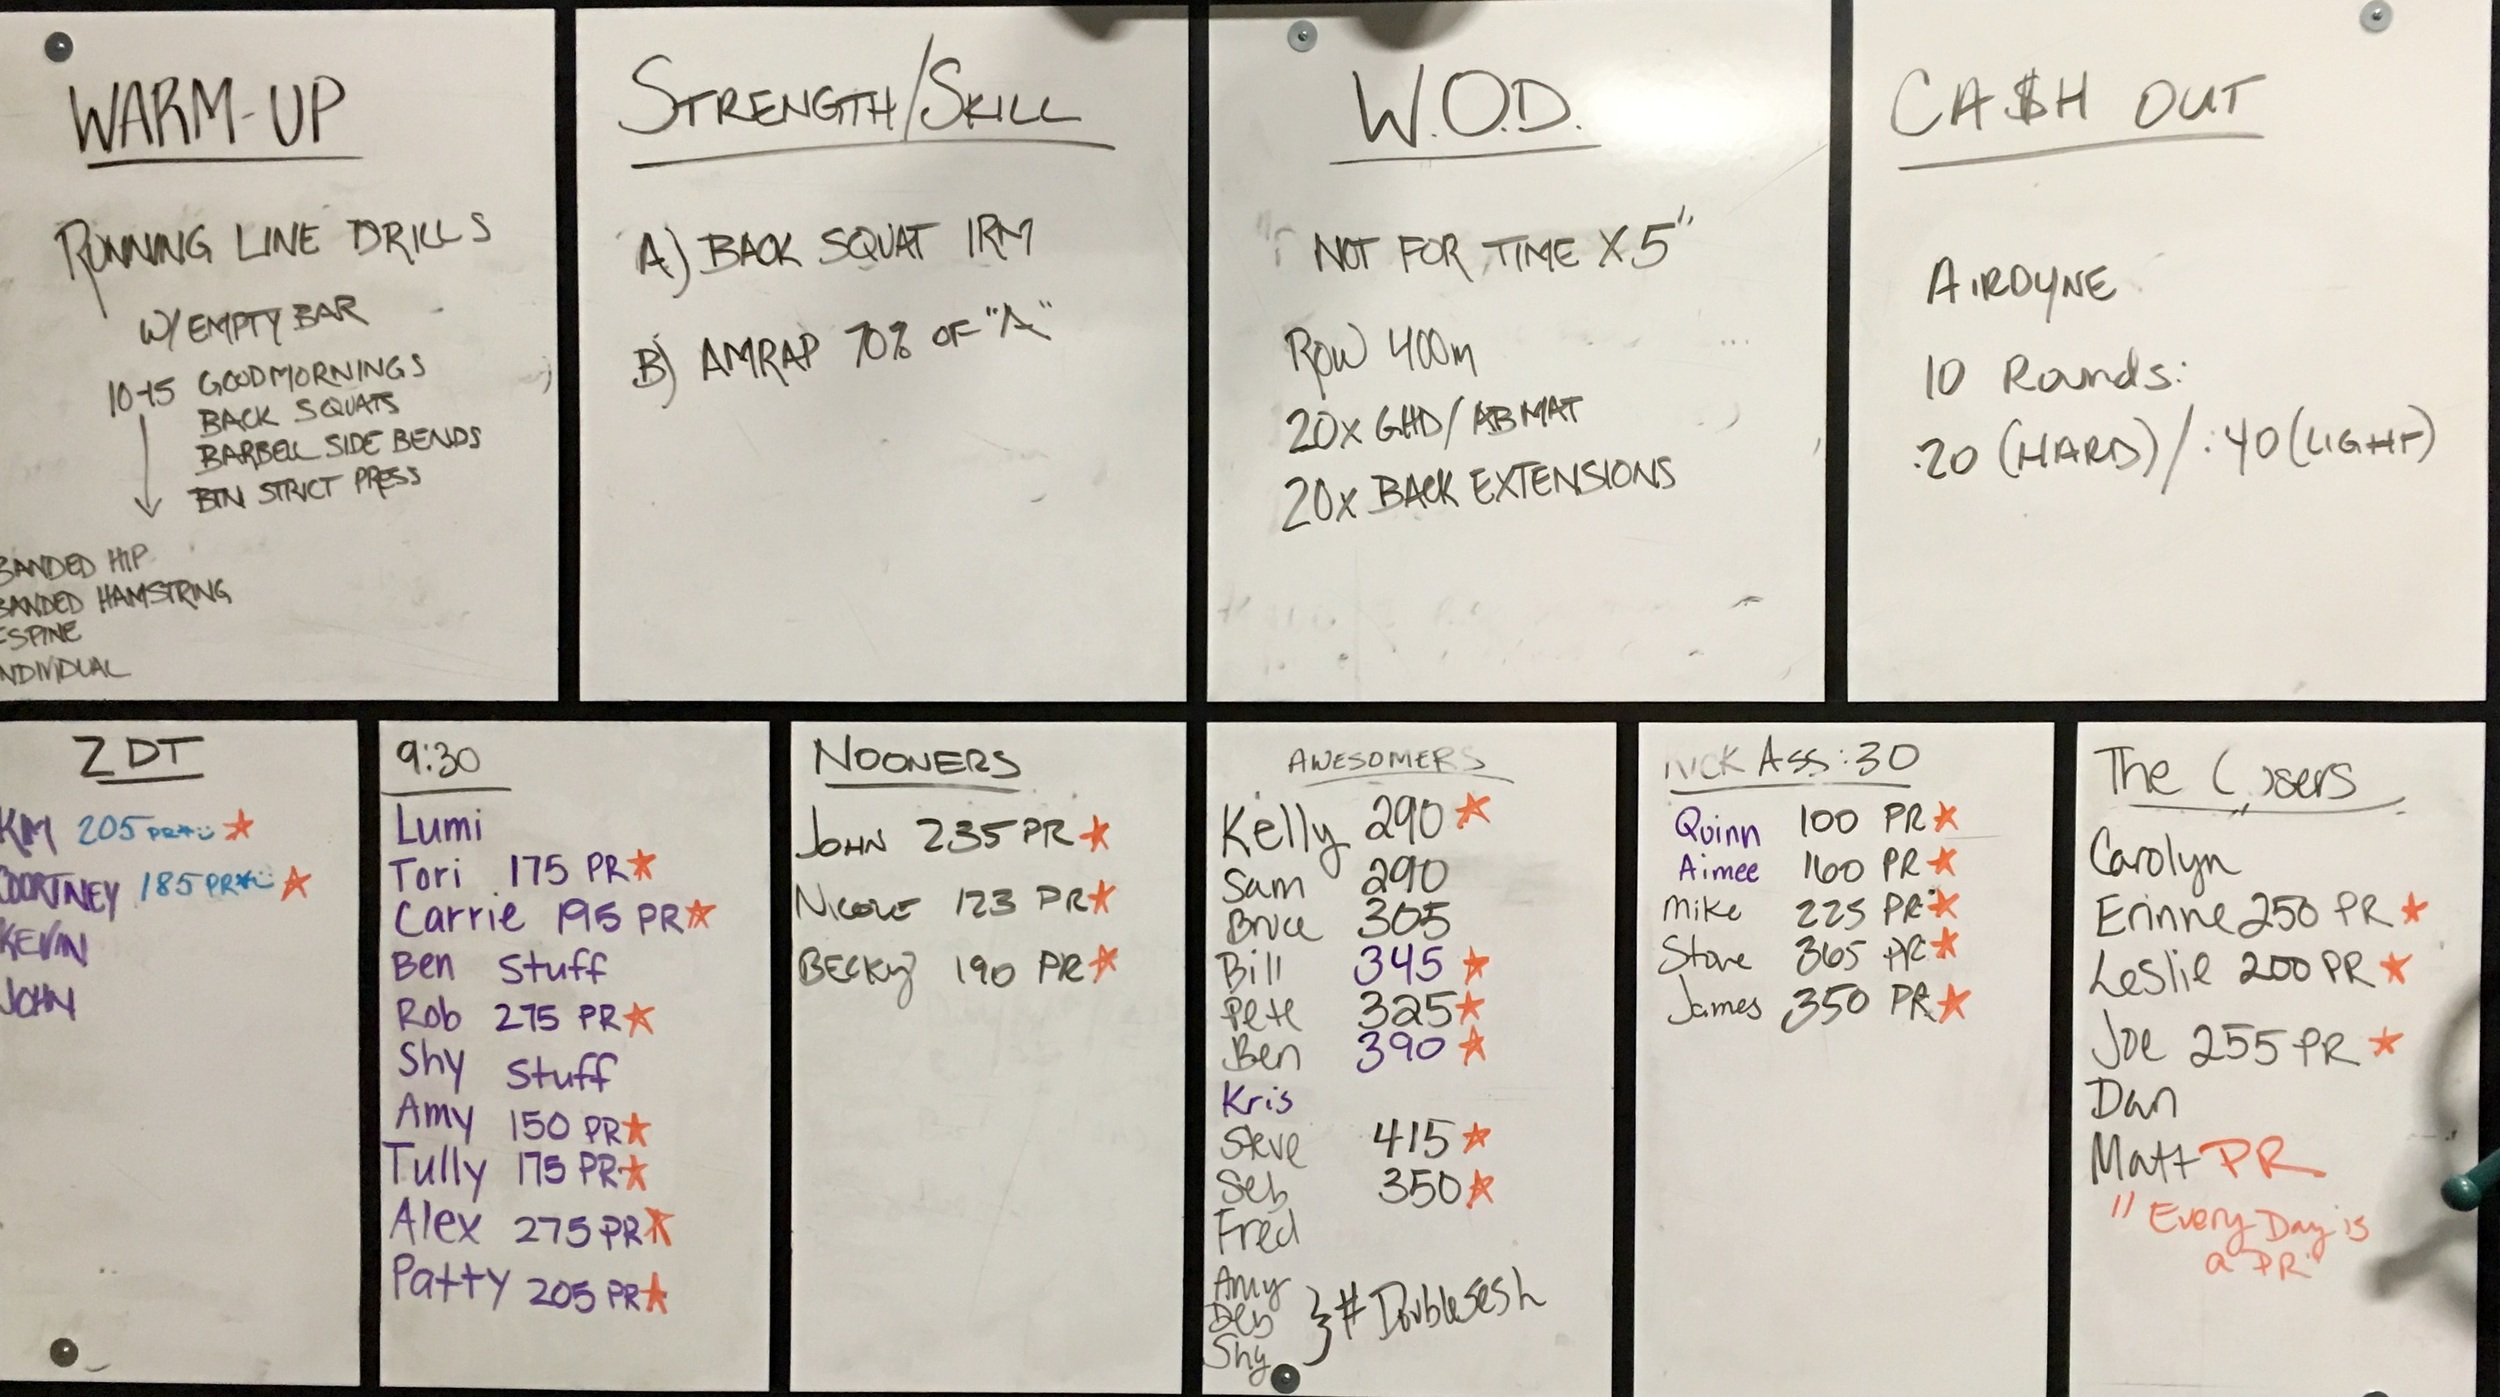 WARM-UP
RUNNING LINE DRILLS
W/ EMPTY BAR
10-15 GOODMORNINGS
BACK SQUATS
BARBELL SIDE BENDS
BTN STRICT PRESS
BANDED HIP
BANDED HAMSTRING
SPINE
NDIVIDUAL
STRENGTH/SKILL
A) BACK SQUAT 1RM
B) AMRAP 70% OF "A"
W.O.D.
"NOT FOR TIME X 5"
ROW 400m
20x GHD/ABMAT
20x BACK EXTENSIONS
CA$H OUT
AIRDYNE
10 Rounds:
:20 (HARD)/:40 (LIGHT)
ZDT
KIM 205 PR
COURTNEY 185 PR
KEVIN
JOHN
9:30
Lumi
Tori 175 PR
Carrie 195 PR
Ben Stuff
Rob 275 PR
Shy Stuff
Amy 150 PR
Tully 175 PR
Alex 275 PR
Patty 205 PR
NOONERS
JOHN 235 PR
NICOLE 123 PR
BECKY 190 PR
AWESOMERS
Kelly 290
Sam 290
Bruce 305
Bill 345
Pete 325
Ben 390
Kris
Steve 415
Seb 350
Fred
Amy
Deb } #Doublesesh
Shy
KICK ASS:30
Quinn 100 PR
Aimee 160 PR
Mike 225 PR
Steve 365 PR
James 350 PR
The
Carolyn
Erinne 250 PR
Leslie 200 PR
Joe 255 PR
Dan
Matt PR
"Every Day is
a PR"